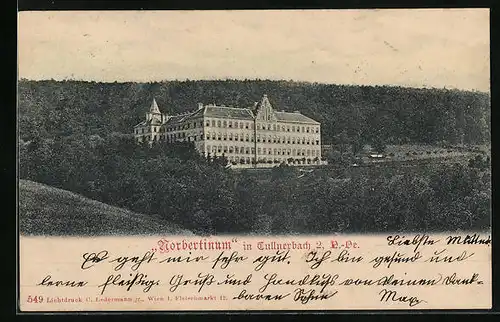 "Norbertinum" in Tullnerbach 2, N.-Oe.
Liebste Mutter
Es geht mir sehr gut. Ich bin gesund und
lerne fleißig. Gruß und Handkuß von Deinem dank-
baren Sohne Max
549 Lichtdruck C. Ledermann jr., Wien I, Fleischmarkt 12.